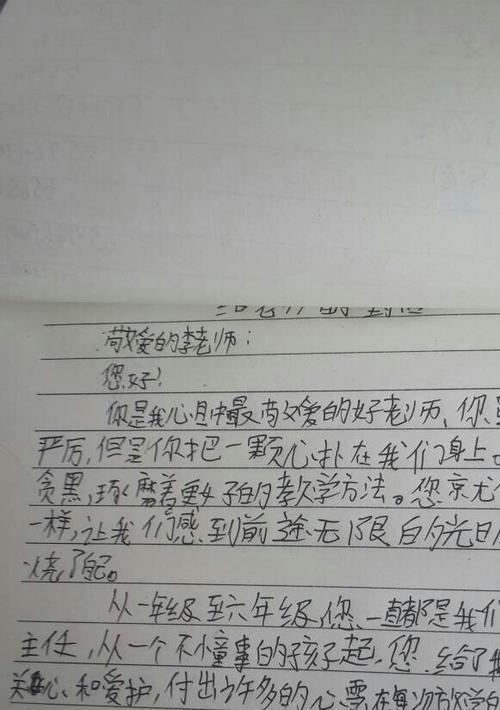 敬爱的李老师：
您好！
你是我心目中最敬爱的好老师，你
严厉，但是你把一颗心扑在我们身上
贪黑，琢磨着更好的教学方法。您就
一样，让我们感到前途无限的光
烧了自己。
从一年级至六年级，您一直都是我们
主任，从一个不懂事的孩子起，您给了
关心和爱护，付出许多的心雪，在每次放学